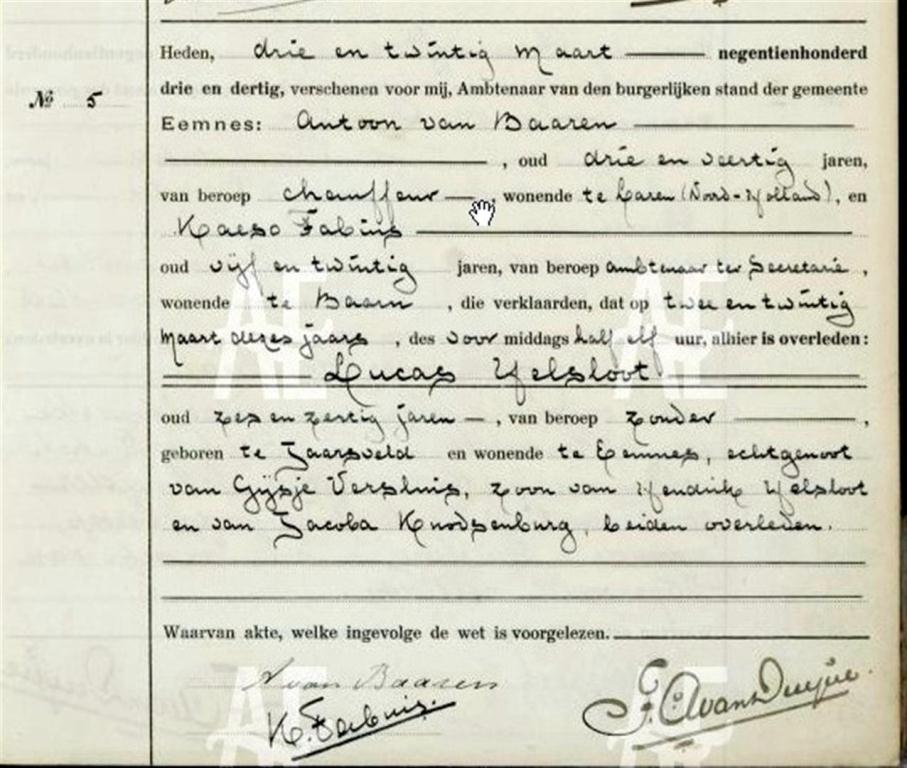 Heden, drie en twintig Maart negentienhonderd
drie en dertig, verschenen voor mij, Ambtenaar van den burgerlijken stand der gemeente
No 5
Eemnes: Antoon van Baaren
, oud drie en veertig jaren,
van beroep chauffeur , wonende te Laren (Noord-Holland), en
Kaeso Fabius
oud vijf en twintig jaren, van beroep ambtenaar ter Secretarie ,
wonende te Baarn , die verklaarden, dat op twee en twintig
Maart dezes jaars , des voor middags half elf uur, alhier is overleden:
Lucas Yelsloot
oud zes en zestig jaren , van beroep zonder ,
geboren te Jaarsveld en wonende te Eemnes, echtgenoot
van Gijsje Versluis, zoon van Hendrik Yelsloot
en van Jacoba Knodsenburg, beiden overleden.
Waarvan akte, welke ingevolge de wet is voorgelezen.
A van Baaren
K. Fabius.